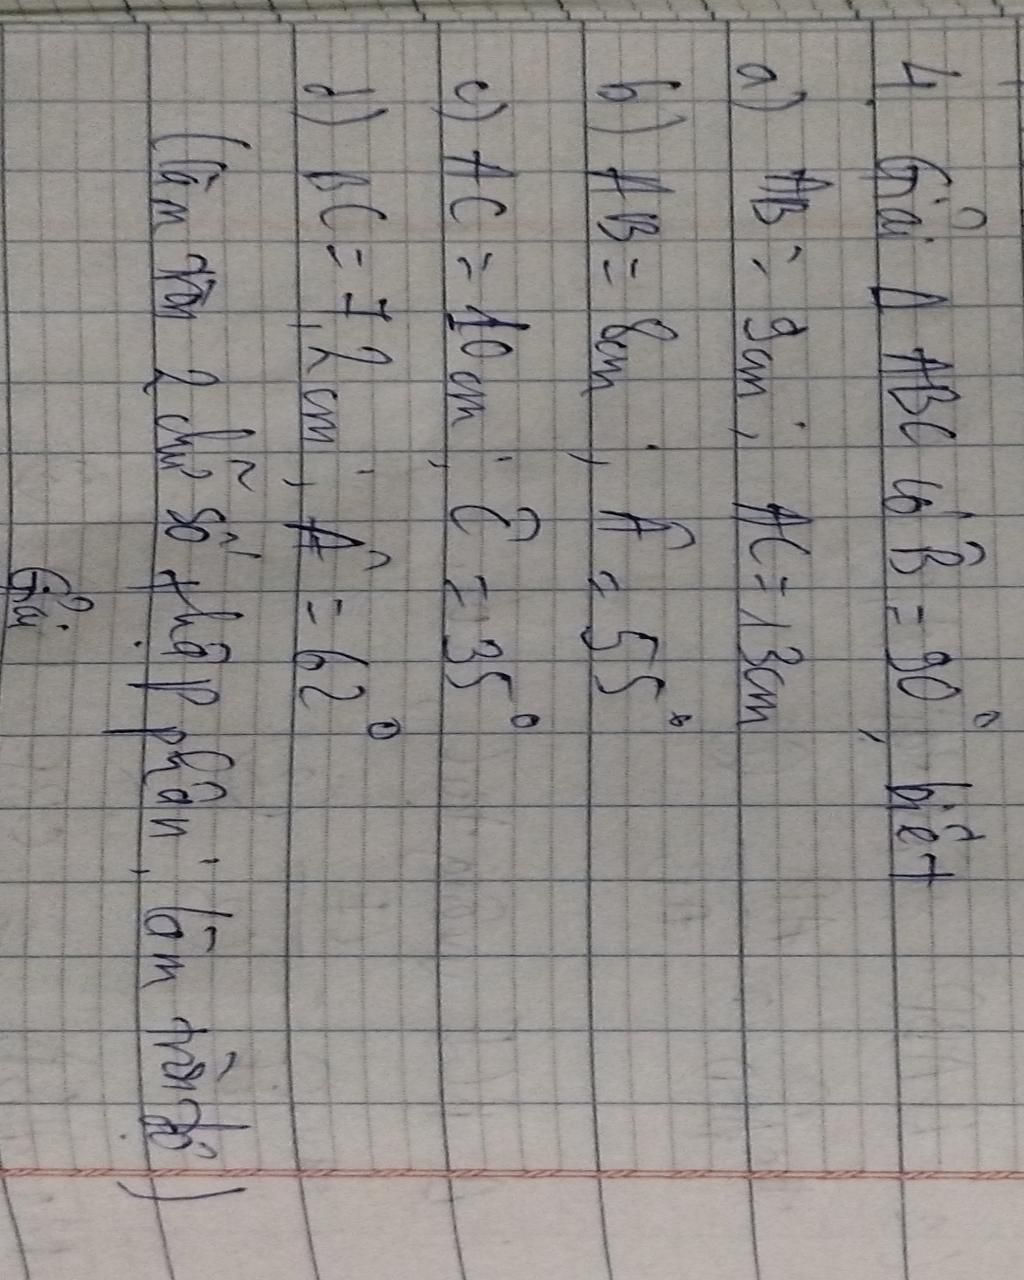 4 Giải Δ ABC có B̂ = 90°, biết
a) AB = 9cm; AC = 13cm
b) AB = 8cm; Â = 55°
c) AC = 10cm; Ĉ = 35°
d) BC = 7,2cm; Â = 62°
(làm tròn 2 chữ số thập phân; làm tròn độ)
Giải